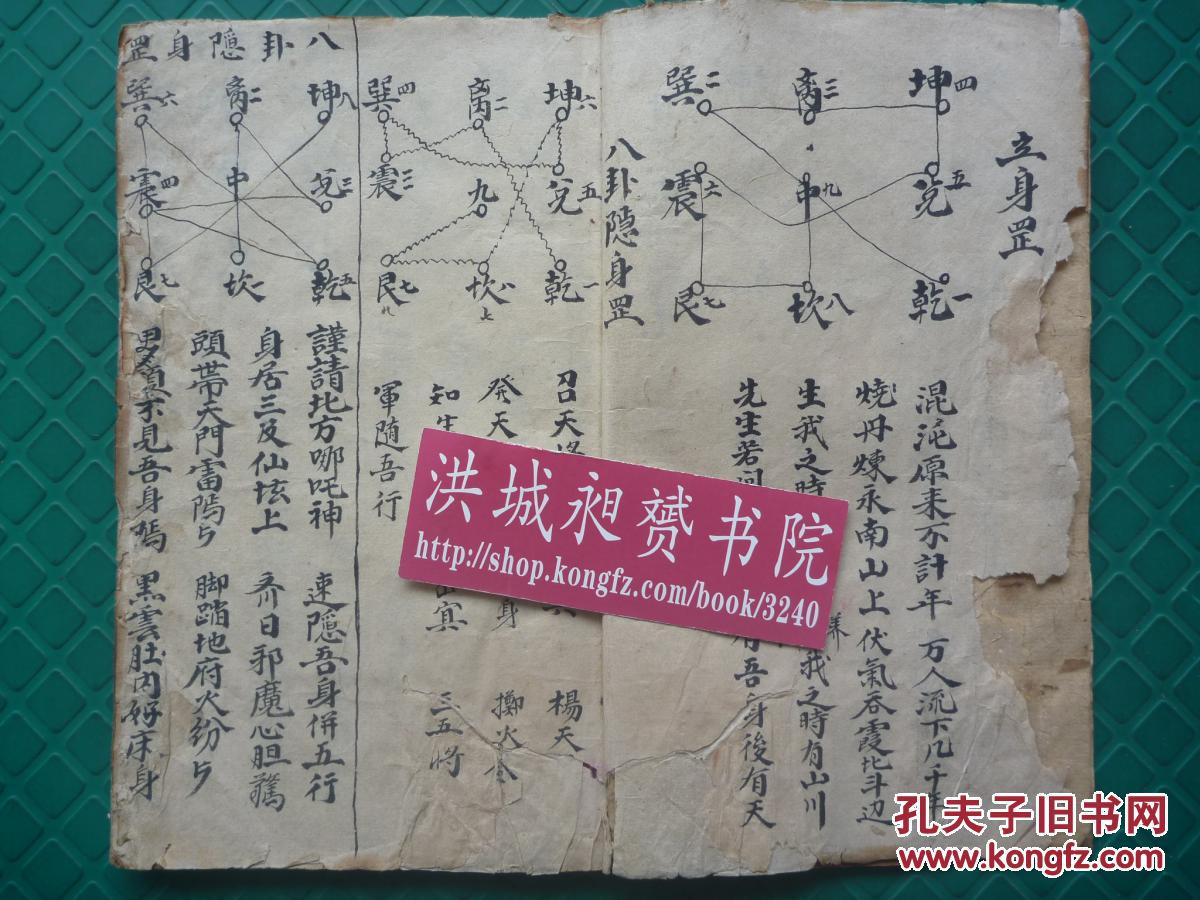 立身罡
坤四 离三 巽二
兌五 中九 震六
乾一 坎八 艮七
混沌原来不計年 万人流下几千年
燒丹煉永南山上 伏氣吞霞北斗边
生我之時 我之時有山川
先生若问 有吾身後有天
八卦隐身罡
坤六 离二 巽四
兌五 九 震三
乾一 坎八 艮七
召天 楊天
發天 身 擲火
知生 三五將
軍随吾行
八卦隱身罡
坤八 离二 巽六
兌三 中 震四
乾五 坎一 艮七
謹請北方哪吒神 速隱吾身併五行
身居三及仙坛上 齐日邪魔心胆驚
頭帶天門雷 脚踏地府火纷
不見吾身 黑雲肚内好床身
洪城昶赟书院
http://shop.kongfz.com/book/3240
孔夫子旧书网
www.kongfz.com